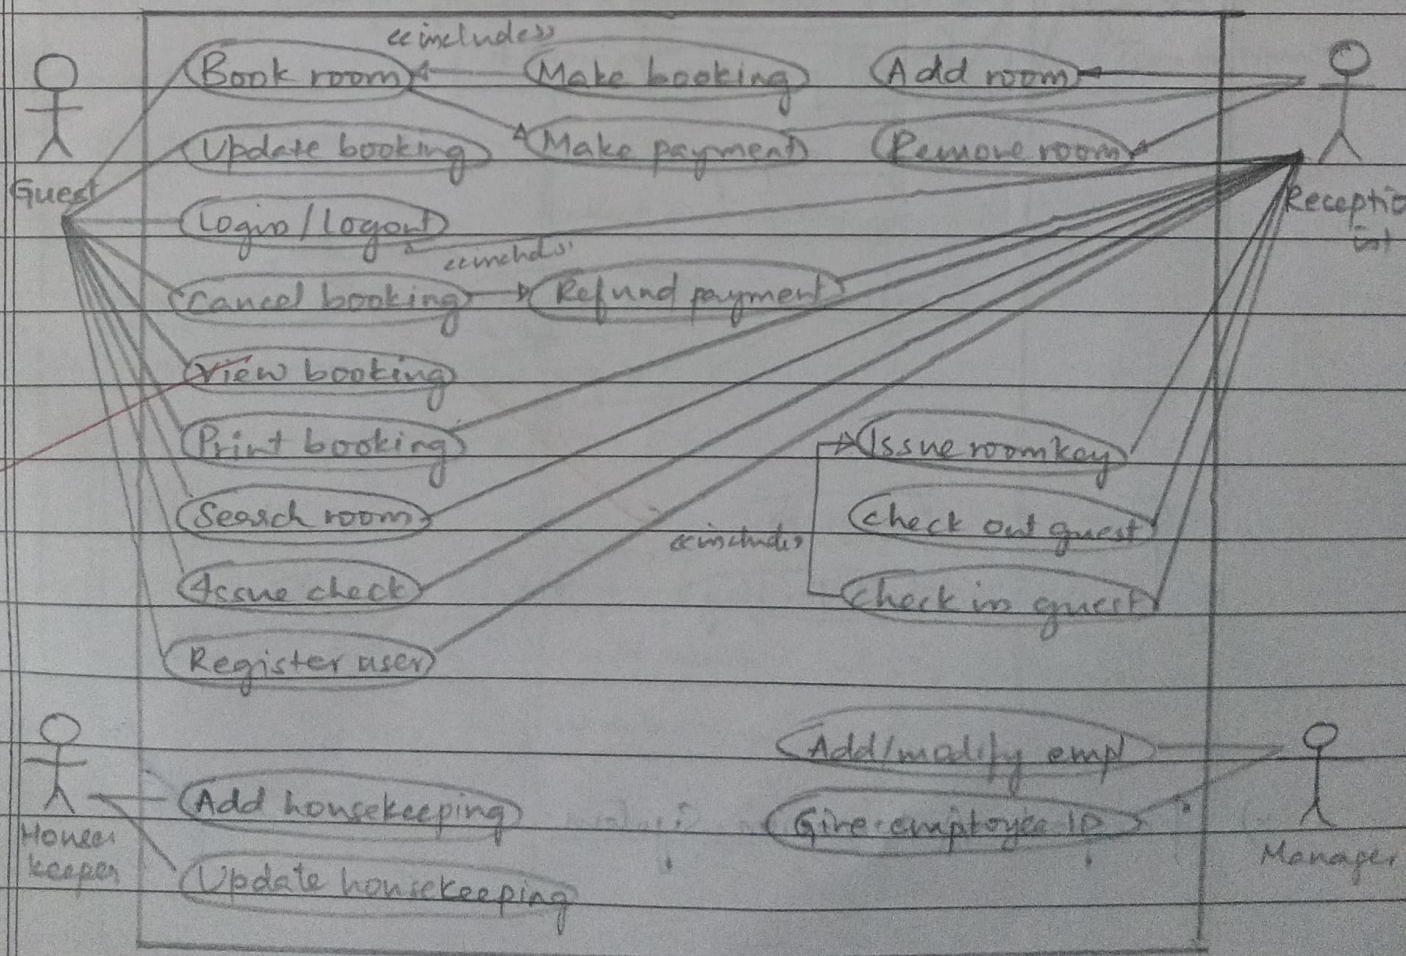 <<includes>>
Book room
Make booking
Add room
Update booking
Make payment
Remove room
Guest
Receptio
ist
Login/Logout
<<includes
Cancel booking
Refund payment
View booking
Print booking
Issue roomkey
Search room
Check out guest
<<includes
Issue check
Check in guest
Register user
Add/modify empl
Add housekeeping
Give employee ID
House
keeper
Manager
Update housekeeping